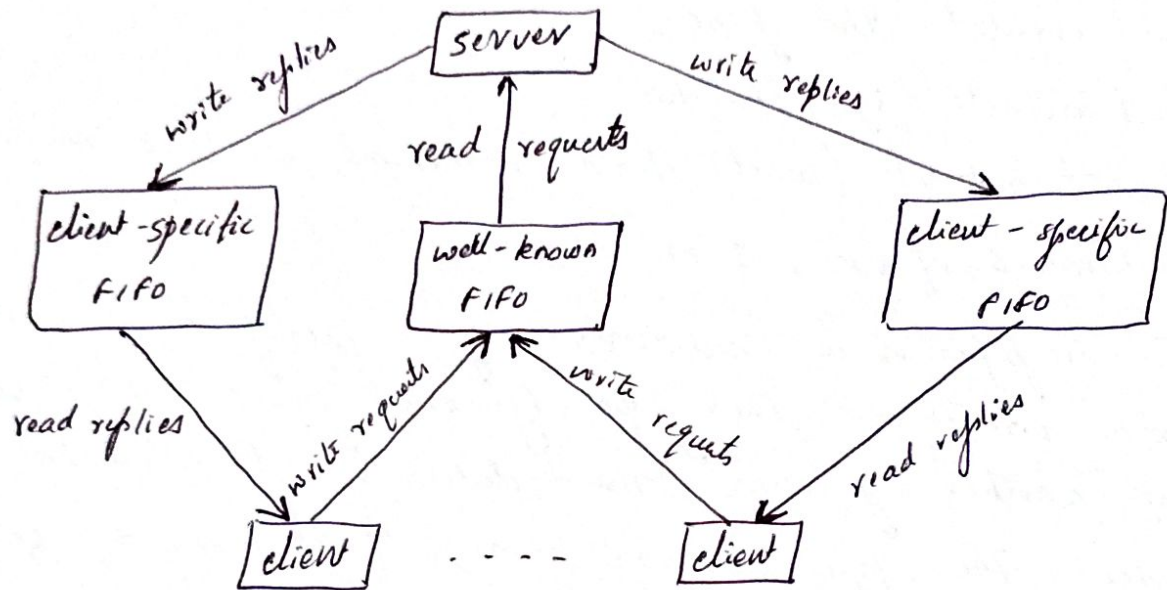 server
write replies
write replies
read requests
client-specific
FIFO
well-known
FIFO
client-specific
FIFO
read replies
write requests
write requests
read replies
client
- - - - -
client